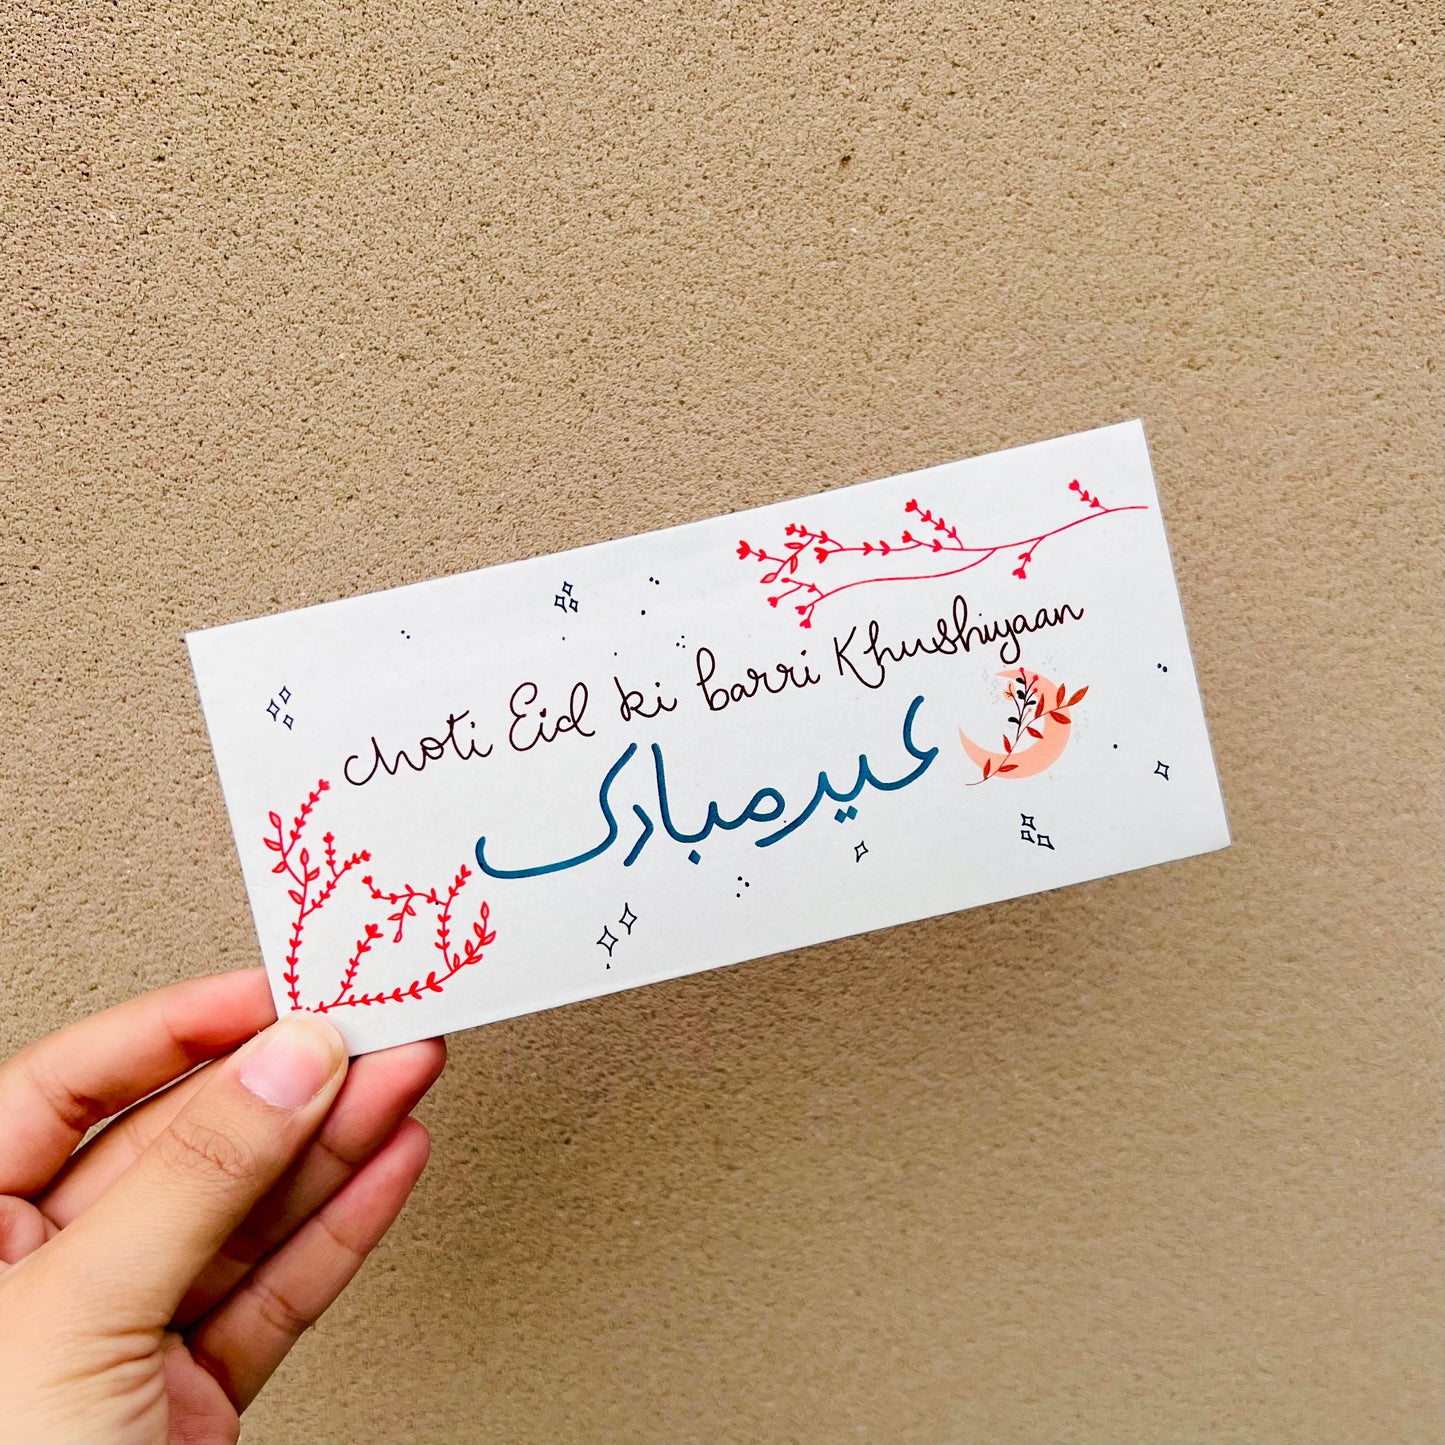 choti Eid ki barri Khushiyaan
عید مبارک